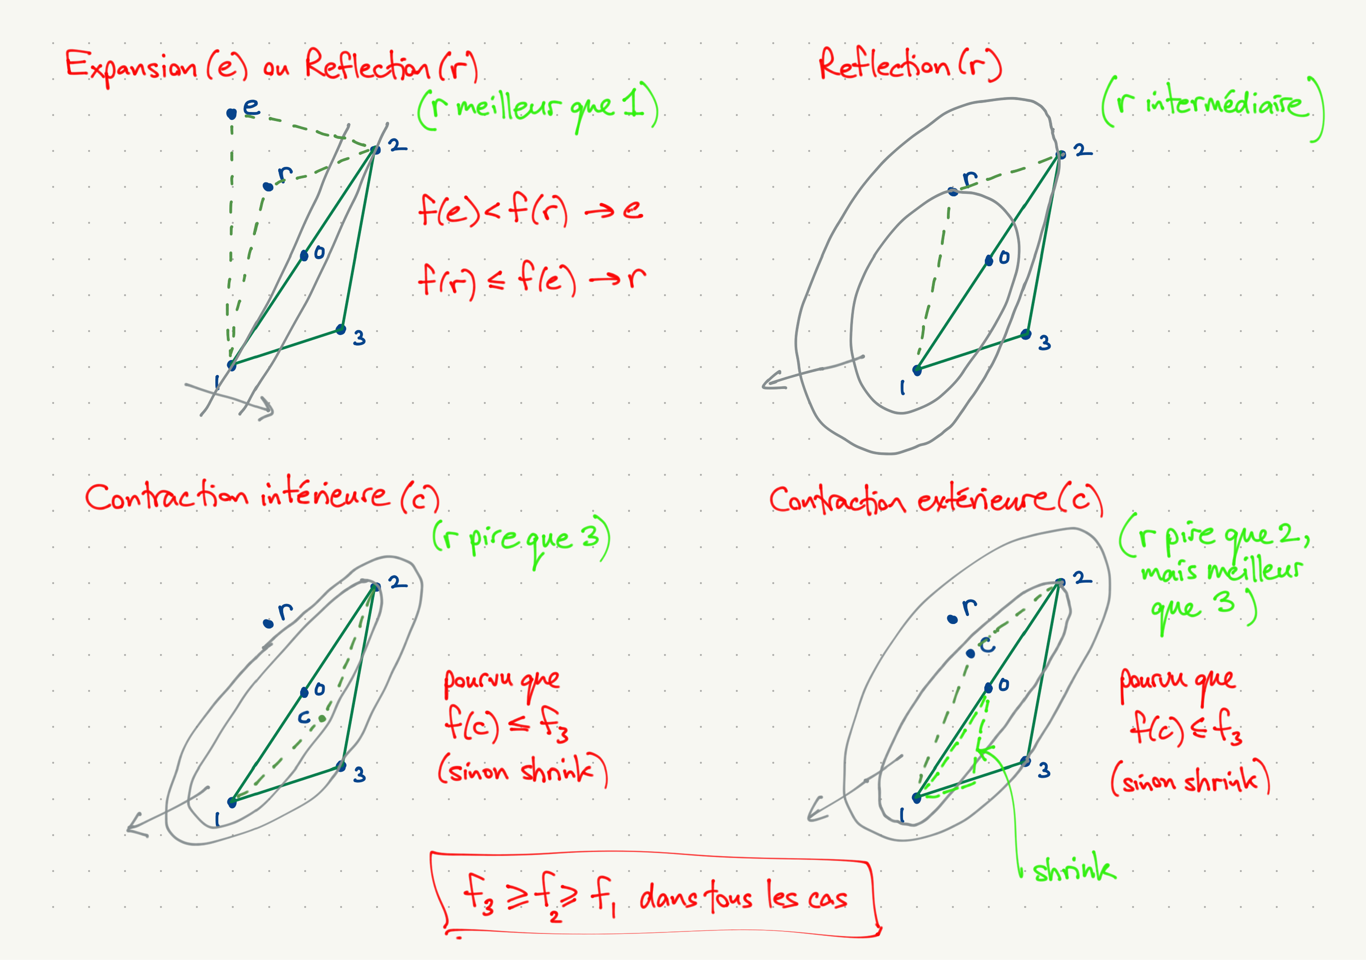 Expansion (e) ou Reflection (r)
(r meilleur que 1)
e
2
r
0
3
1
f(e) < f(r) → e
f(r) ⩽ f(e) → r
Reflection (r)
(r intermédiaire)
2
r
0
3
1
Contraction intérieure (c)
(r pire que 3)
2
r
0
c
3
1
pourvu que
f(c) ⩽ f₃
(sinon shrink)
Contraction extérieure (c)
(r pire que 2,
mais meilleur
que 3)
2
r
c
0
3
1
pourvu que
f(c) ⩽ f₃
(sinon shrink)
shrink
f₃ ⩾ f₂ ⩾ f₁ dans tous les cas